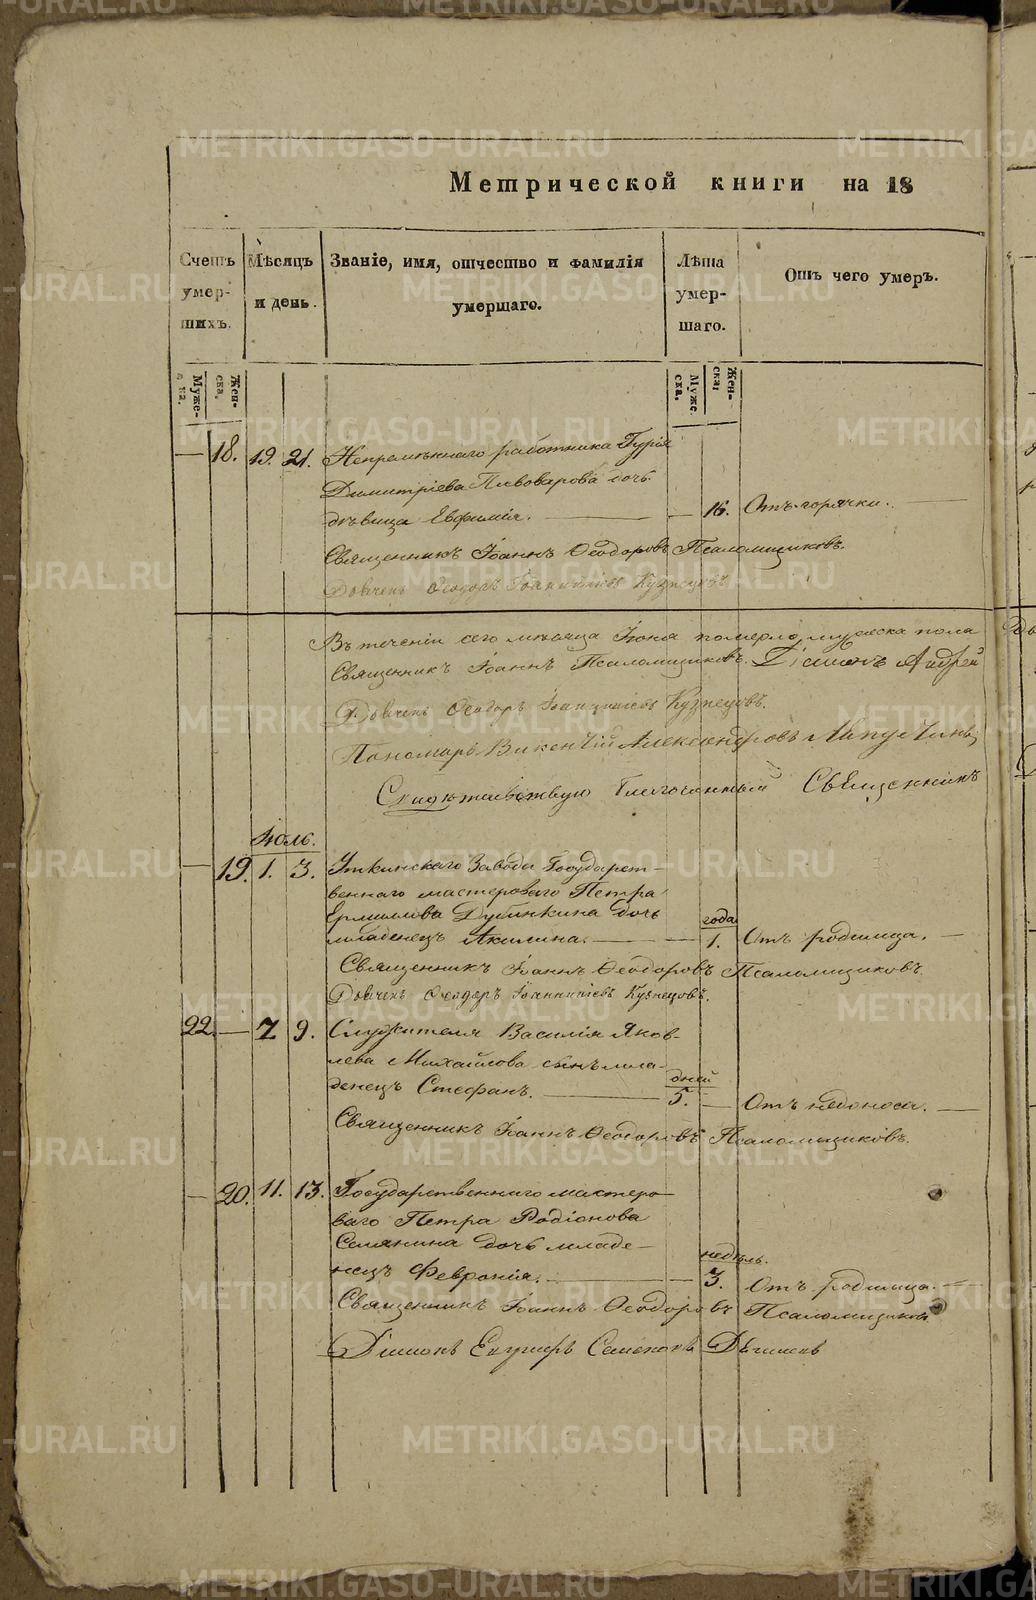 Метрической книги на 18
Счетъ умер-шихъ.
Мѣсяцъ и день.
Званіе, имя, отчество и фамилія умершаго.
Лѣта умер-шаго.
Отъ чего умеръ.
Муже-ска.
Жен-ска.
Муже-ска.
Жен-ска.
— 18. 19. 21. Непремѣннаго работника Гурія
Димитріева Пивоварова дочь
дѣвица Евфимія. — 16. Отъ горячки.
Священникъ Іоаннъ Ѳеодоровъ Псаломщиковъ.
Ѳеодоръ Іоанникіевъ Кузнецовъ.
Въ теченіи сего мѣсяца Іюня померло, мужеска пола
Священникъ Іоаннъ Псаломщиковъ. Діаконъ Андрей
Ѳеодоръ Іоанникіевъ Кузнецовъ.
Пономарь Викентій Александровъ
Свидѣтельствую Благочинный Священникъ
Іюль.
— 19. 1. 3. Уткинскаго Завода Государст-
веннаго мастероваго Петра
Ермилова Дубинкина дочь
года
младенецъ Акилина. — 1. Отъ родимца.
Священникъ Іоаннъ Ѳеодоровъ Псаломщиковъ.
Ѳеодоръ Іоанникіевъ Кузнецовъ.
22. — 7 9. Служителя Василія Яков-
лева Михайлова сынъ мла-
дней
денецъ Стефанъ. — 5. — Отъ недоноса.
Священникъ Іоаннъ Ѳеодоровъ Псаломщиковъ.
— 20. 11. 13. Государственнаго мастеро-
ваго Петра Родіонова
Селянина дочь младе-
недѣль.
нецъ Февронія. — 3. Отъ родимца.
Священникъ Іоаннъ Ѳеодоровъ Псаломщиковъ
Діаконъ Семеновъ
METRIKI.GASO-URAL.RU